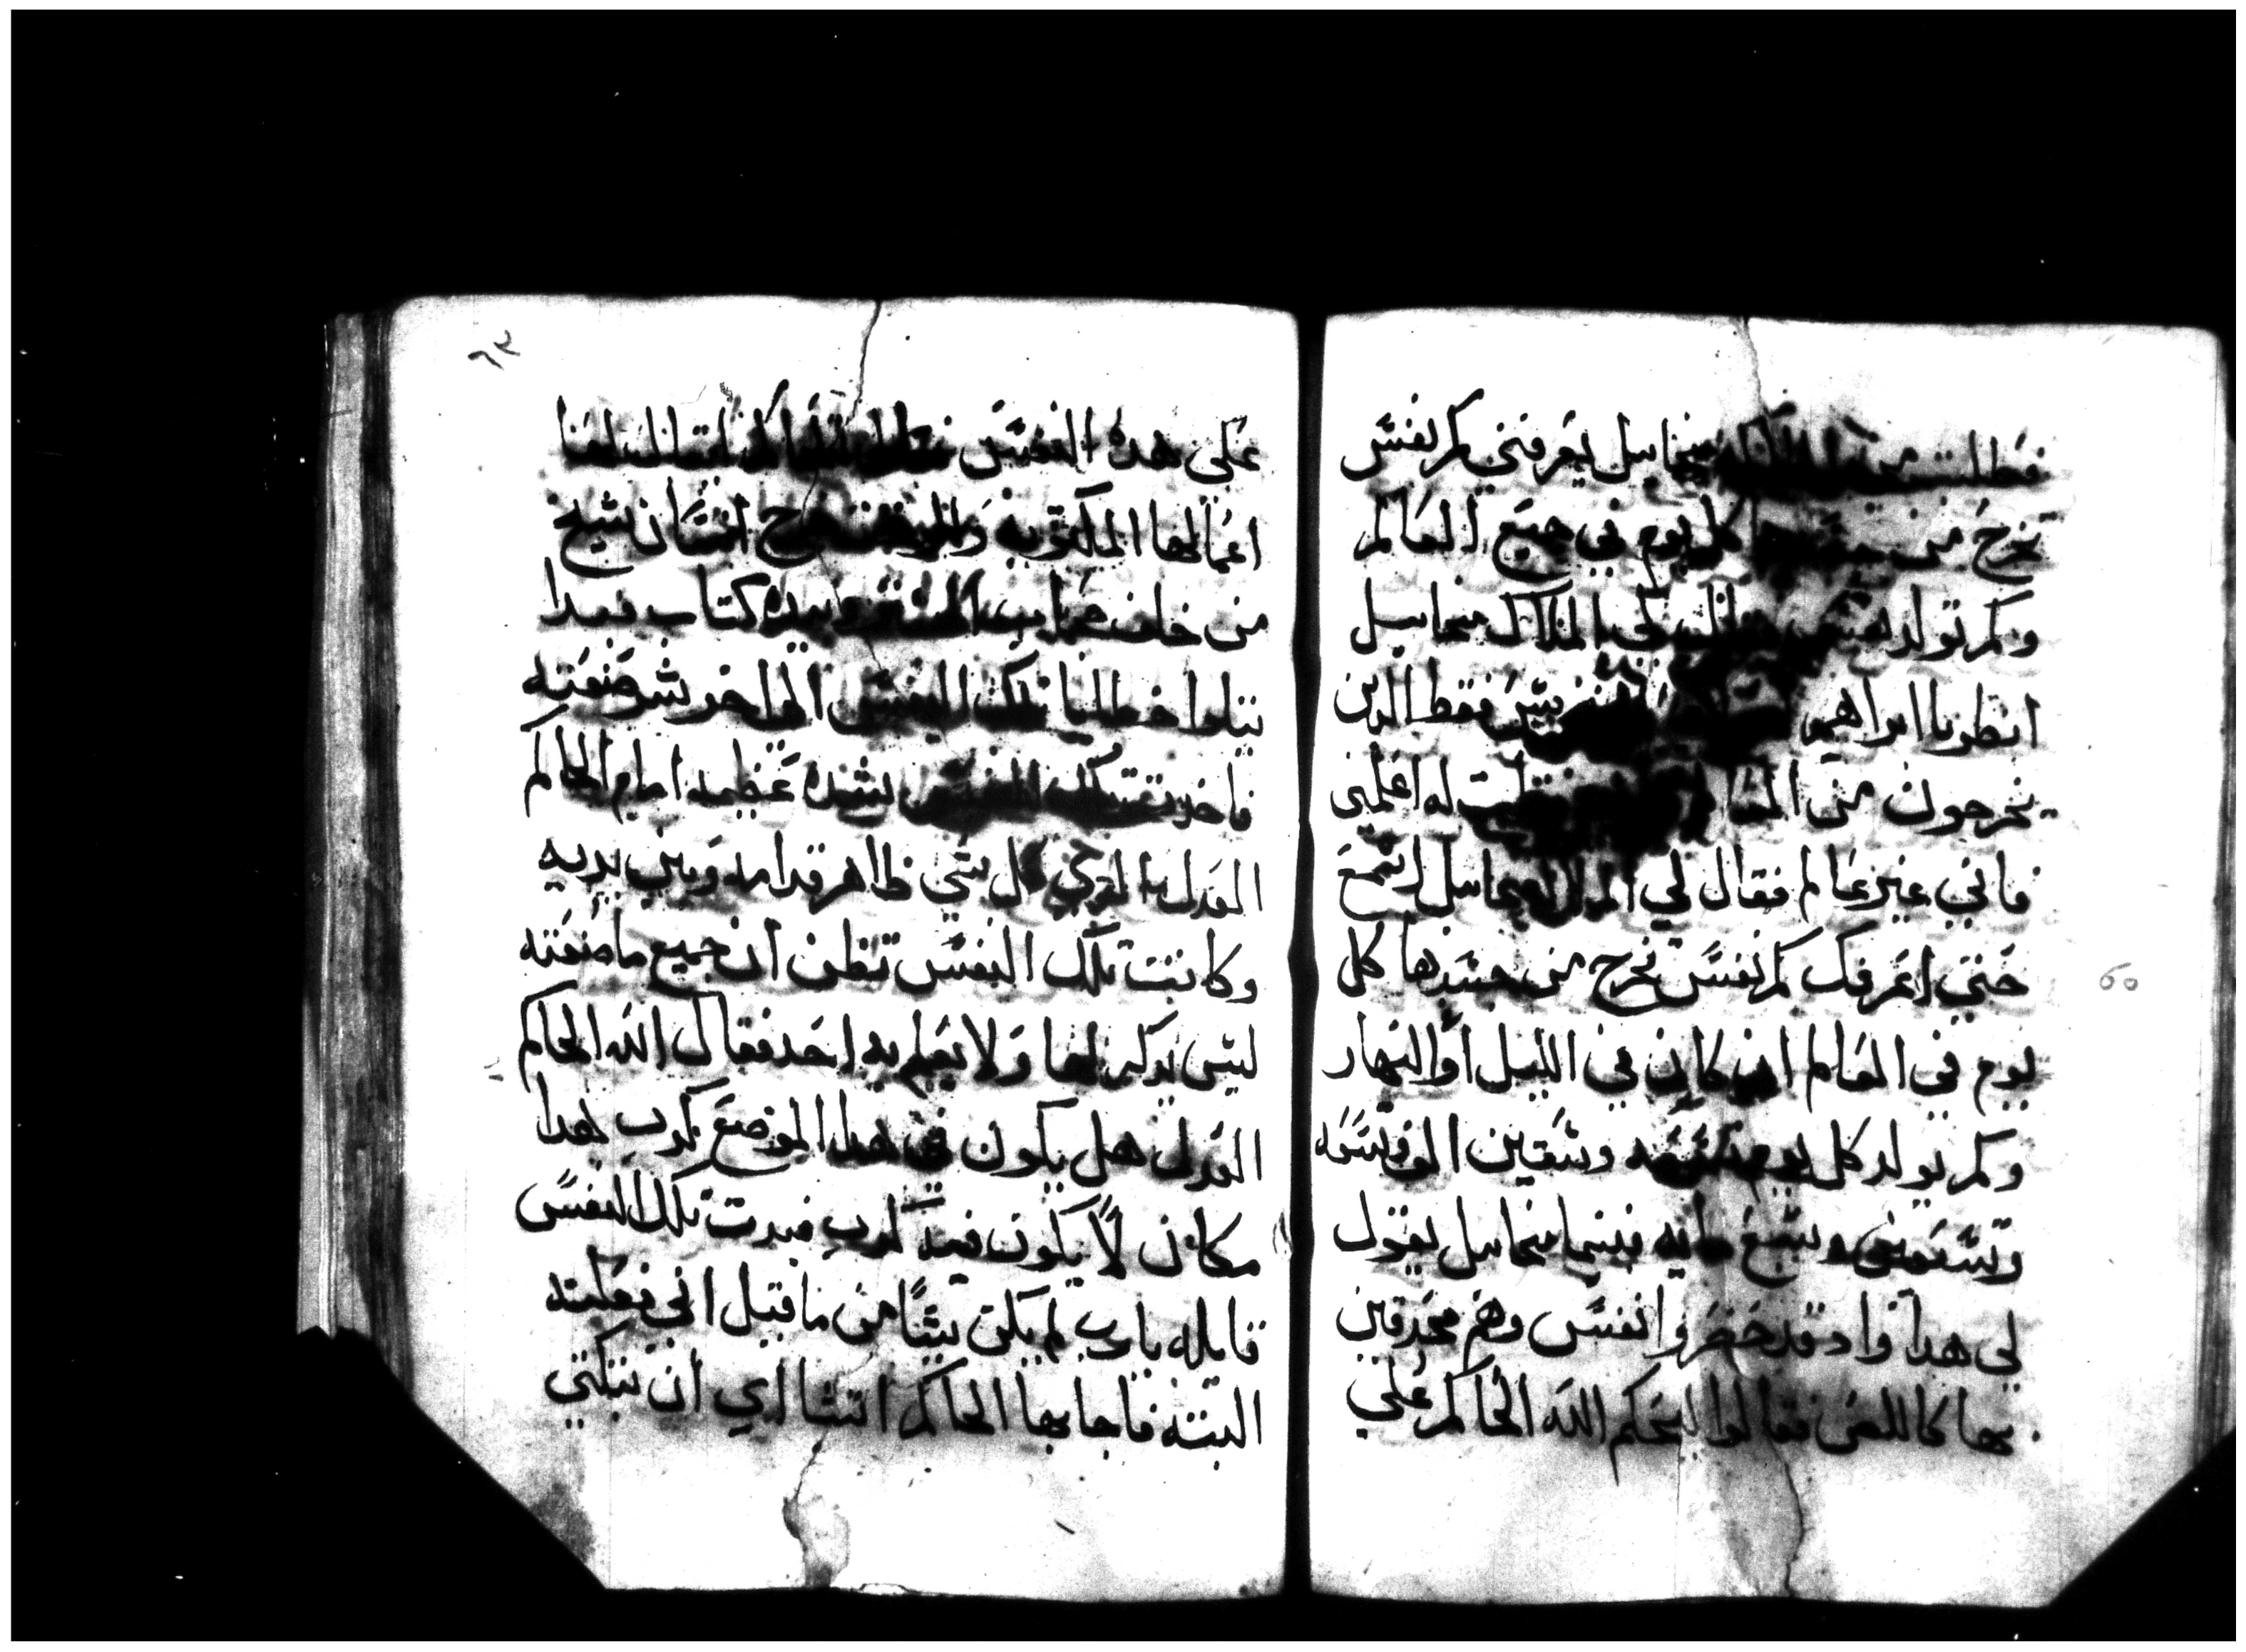 فطلبت من ميخاييل يعرفني كم نفس
تخرج من كل يوم في جميع العالم
وكم تولد فقال لي الملاك ميخاييل
انظر يا ابراهيم فقط الدين
يخرجون من فقلت له اعلمني
فاني غير عالم فقال لي الملاك ميخاييل اسمع
حتي اعرفك كم نفس تخرج من جسدها كل
يوم في العالم ان كان في الليل او النهار
وكم يولد كل يوم تسعه وتسعين الف وتسعه
وتسعين وتسع مايه فبينما ميخاييل يقول
لي هدا واد قد حضروا نفس وهم محدقين
بها كاللص فقالوا ليحكم الله الحاكم علي
٦٣
علي هده النفس
اعمالها المكتوبه خرج انسان شيخ
من خلف وبيده كتاب فبدا
يتلوا خطايا تلك النفس الي اخر شر صنعته
فاخد تلك النفس بشده عظيمه امام الحاكم
العدل كل شي ظاهر قدامه وبين يديه
وكانت تلك النفس تظن ان جميع ما صنعته
ليس يدكر لها ولا يعلم به احد فقال الله الحاكم
العدل هل يكون في هدا الموضع كدب هدا
مكان لا يكون فيه كدب فبدت تلك النفس
قايله يا رب لم يكن شيا من ما قيل اني فعلته
البته فاجابها الحاكم اتشا اري ان تبكتي